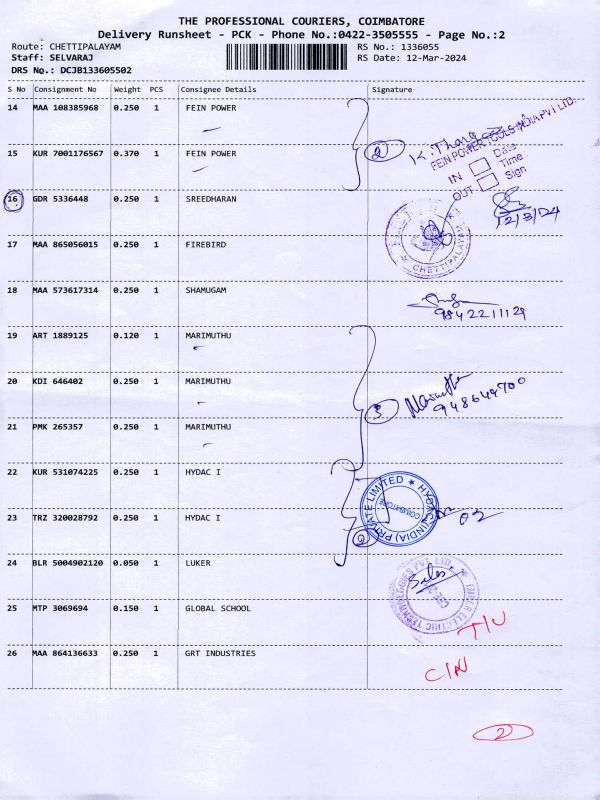 THE PROFESSIONAL COURIERS, COIMBATORE
Delivery Runsheet - PCK - Phone No.:0422-3505555 - Page No.:2
Route: CHETTIPALAYAM RS No.: 1336055
Staff: SELVARAJ RS Date: 12-Mar-2024
DRS No.: DCJB133605502
S No Consignment No Weight PCS Consignee Details Signature
14 MAA 108385968 0.250 1 FEIN POWER
15 KUR 7001176567 0.370 1 FEIN POWER 2
FEIN POWER TOOLS INDIA PVT LTD.
IN Date
Time
OUT Sign
16 GDR 5336448 0.250 1 SREEDHARAN
12/3/24
17 MAA 865056015 0.250 1 FIREBIRD
CHETTIPALAYAM
18 MAA 573617314 0.250 1 SHAMUGAM
9842211129
19 ART 1889125 0.120 1 MARIMUTHU
20 KDI 646402 0.250 1 MARIMUTHU
3 Marimuthu
21 PMK 265357 0.250 1 MARIMUTHU
22 KUR 531074225 0.250 1 HYDAC I
HYDAC (INDIA) PRIVATE LIMITED
COIMBATORE
23 TRZ 320028792 0.250 1 HYDAC I
2
24 BLR 5004902120 0.050 1 LUKER
LUKER ELECTRIC TECHNOLOGIES PVT. LTD.
25 MTP 3069694 0.150 1 GLOBAL SCHOOL
26 MAA 864136633 0.250 1 GRT INDUSTRIES
2